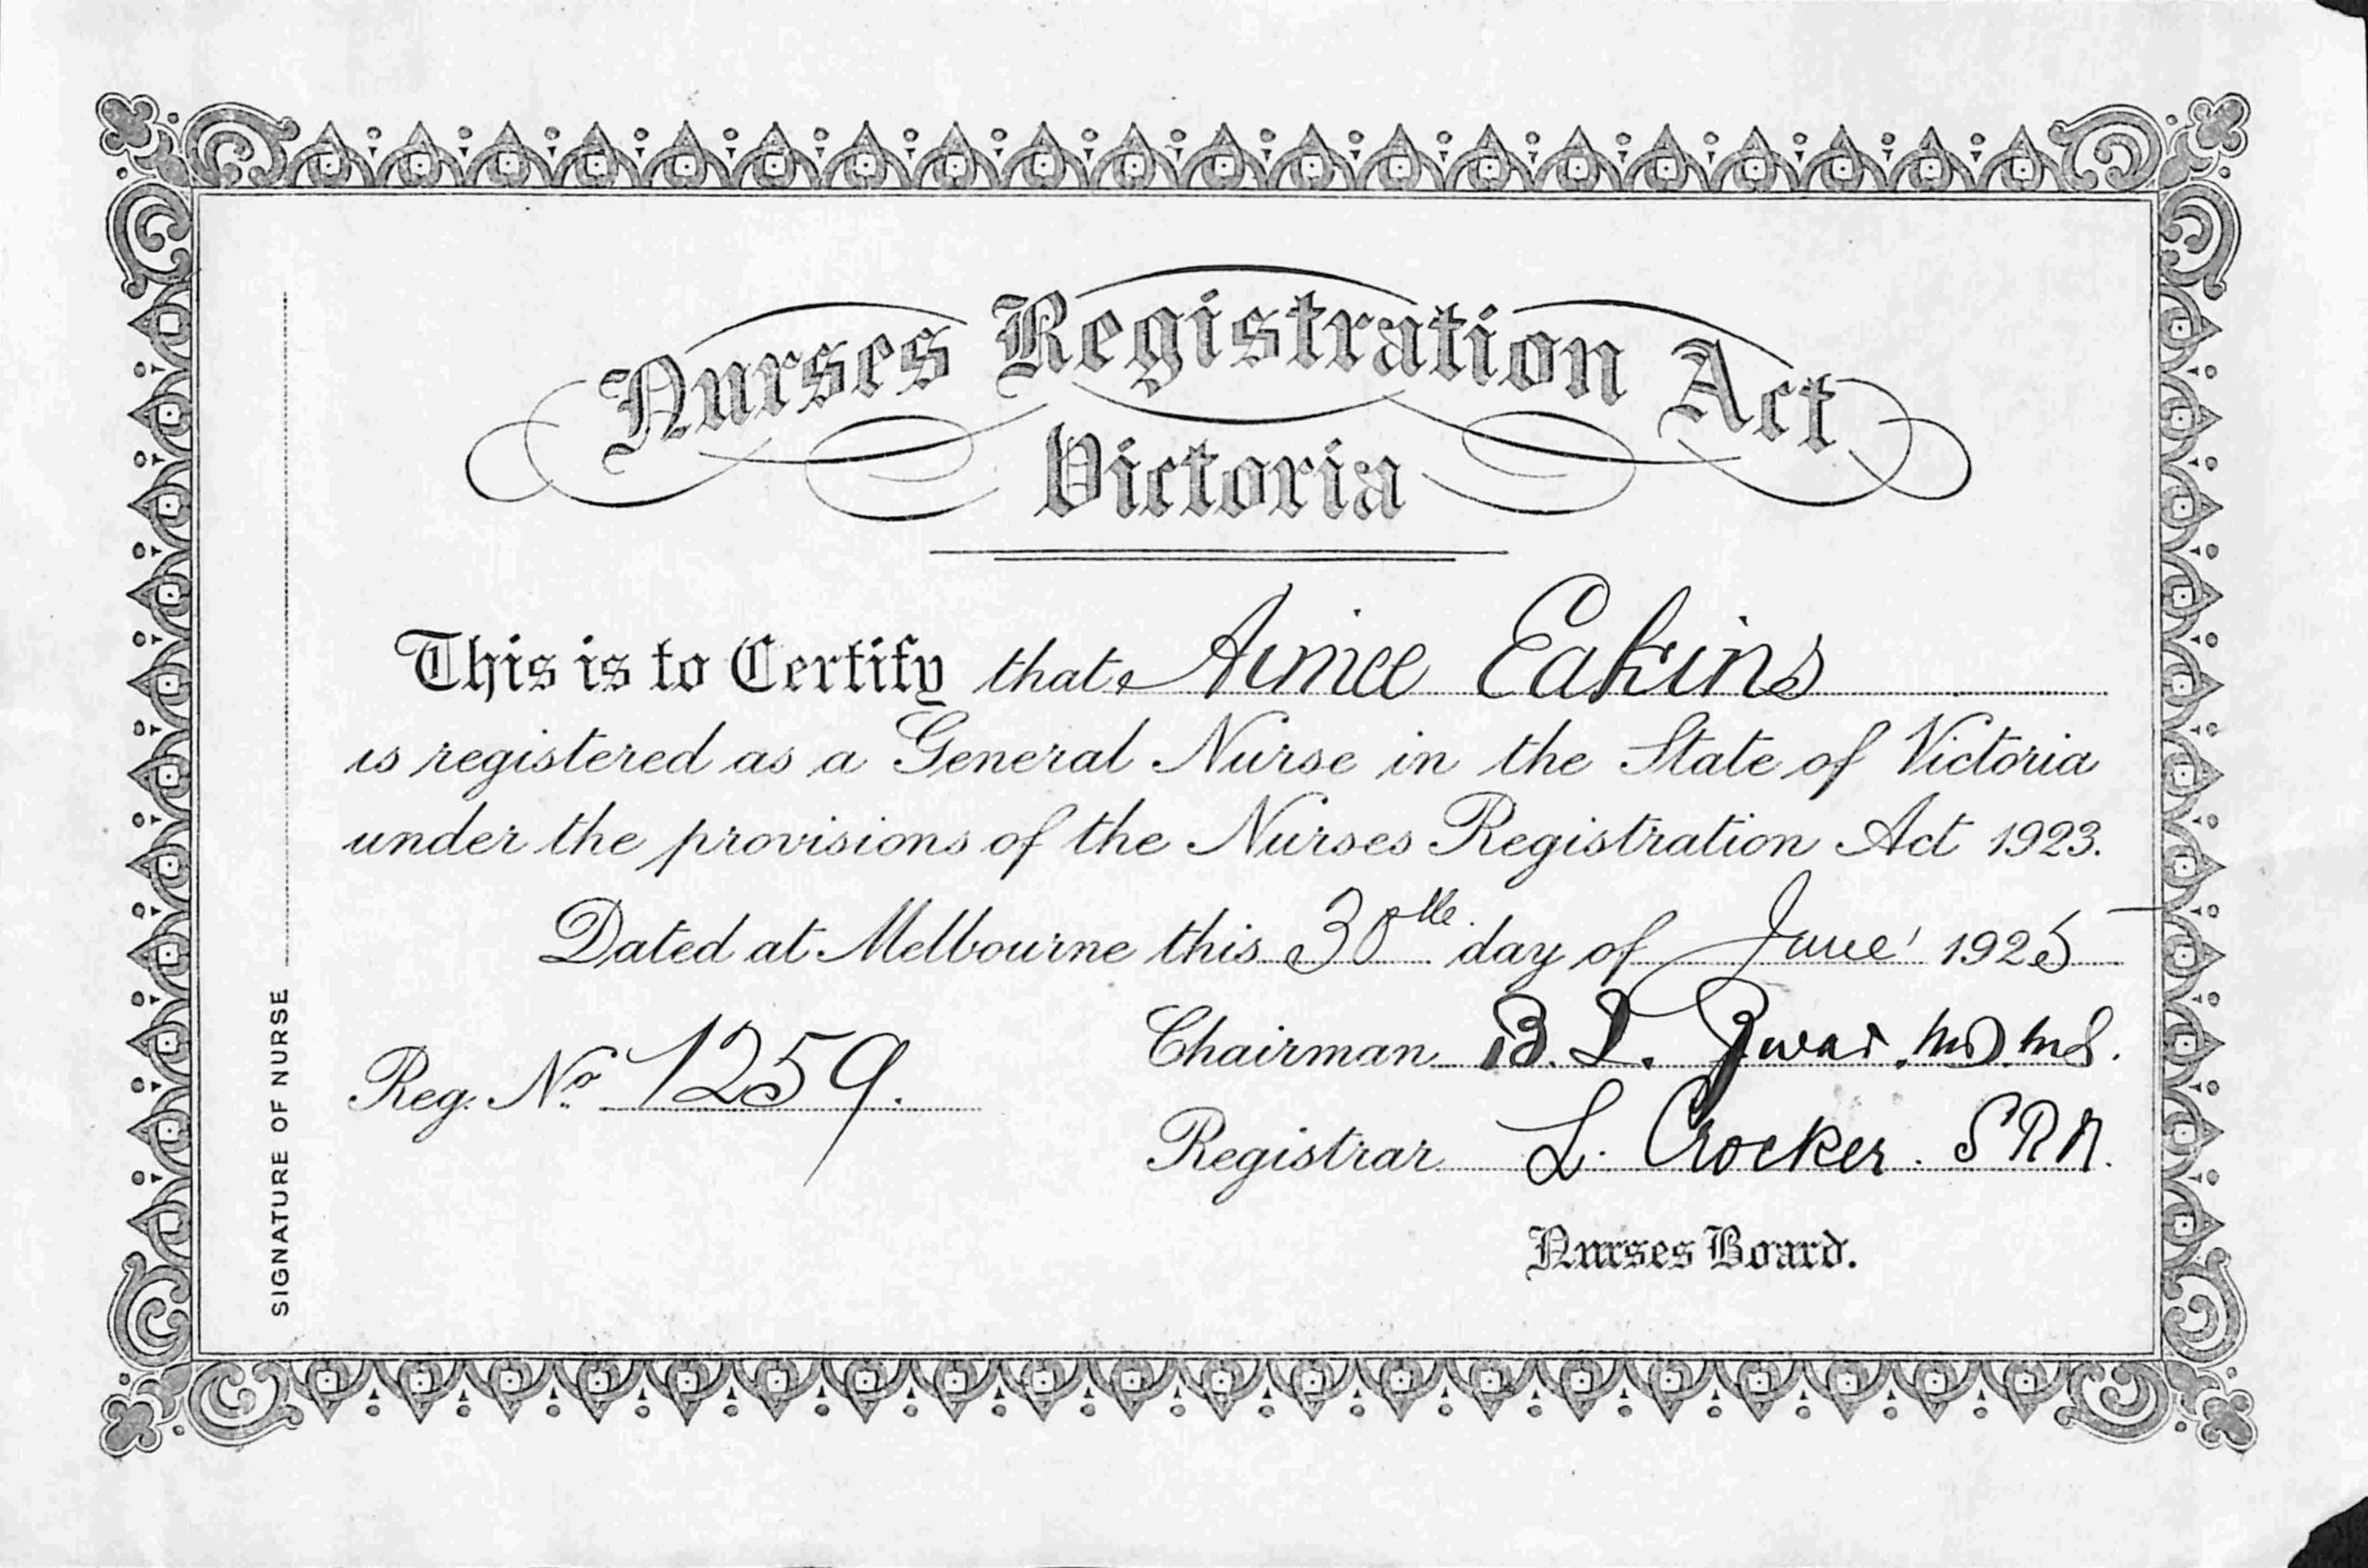 Nurses Registration Act
Victoria
This is to Certify that Aimee Eakins
is registered as a General Nurse in the State of Victoria
under the provisions of the Nurses Registration Act 1923.
Dated at Melbourne this 30th day of June 1925
Reg. No. 1259.
Chairman B. T. Zwar. MD. MS.
Registrar L. Crocker. SRN.
Nurses Board.
SIGNATURE OF NURSE